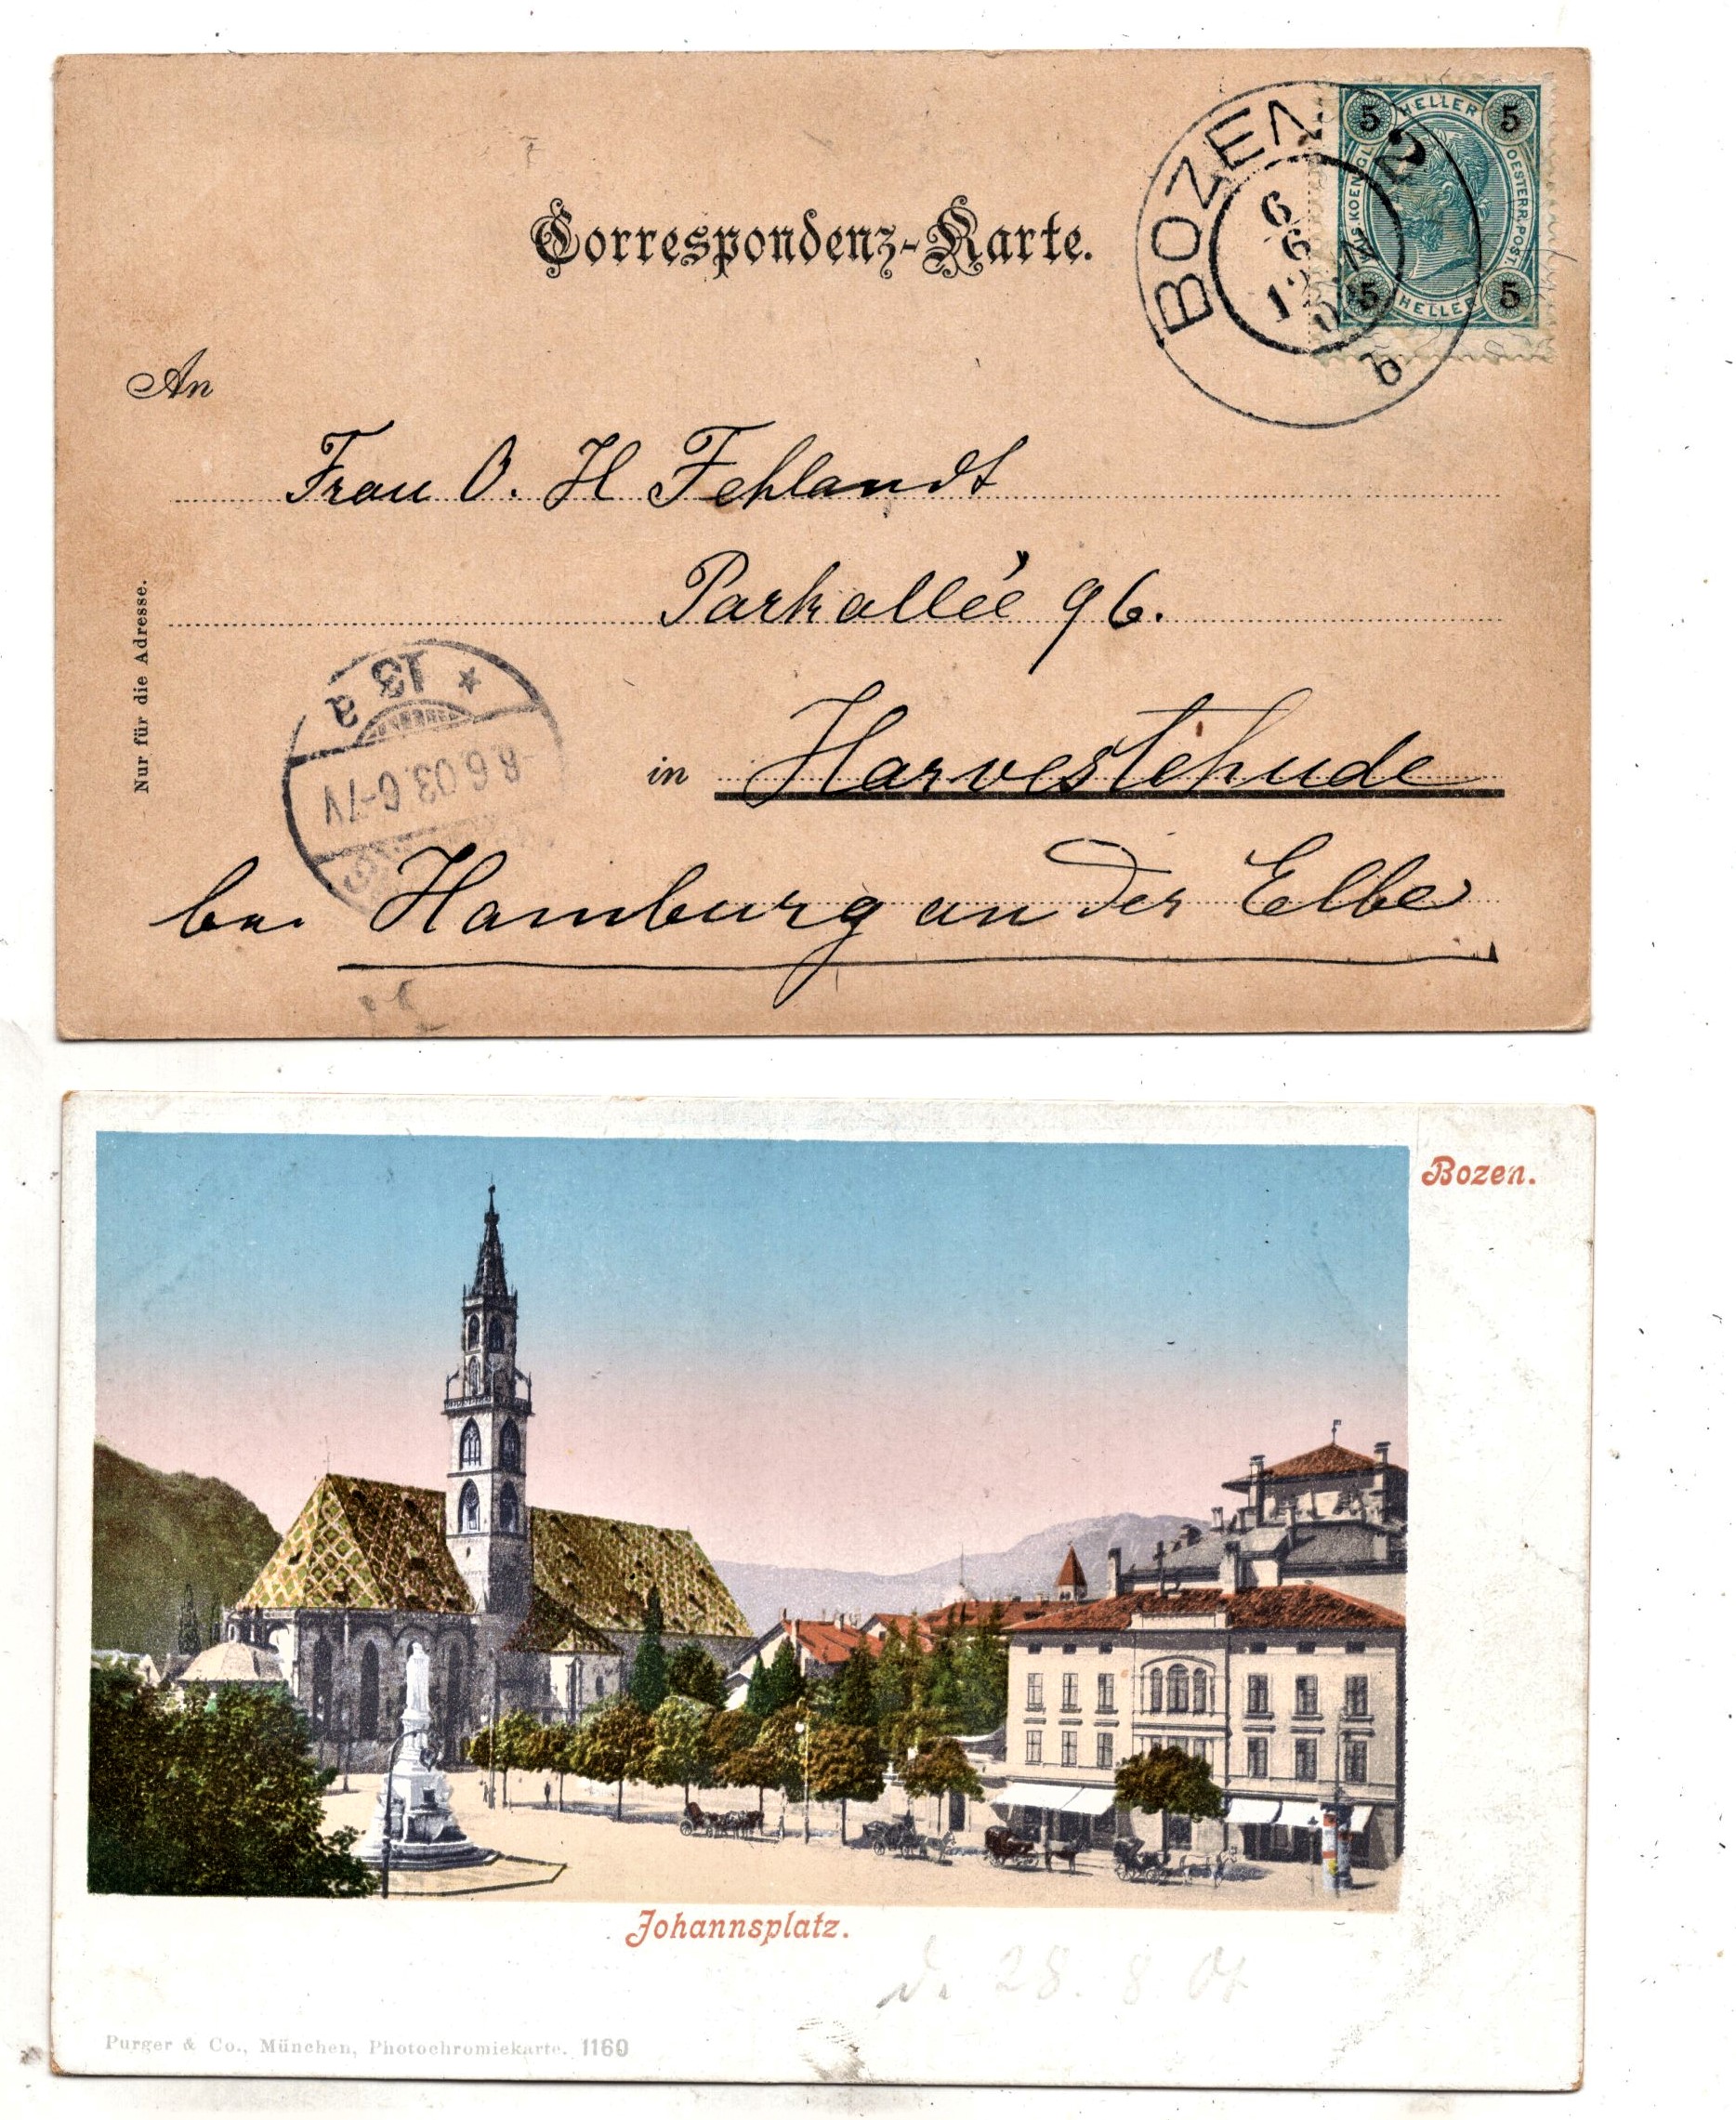 Correspondenz-Karte.
BOZEN 2
6
6
12
b
5 HELLER 5
KAIS KOENIGL
OESTERR. POST.
5 HELLER 5
An
Frau O. H Fehlandt
Parkallée 96.
in Harvestehude
bei Hamburg an der Elbe
Nur für die Adresse.
* 13 a
-8.6.03.6-7V
Bozen.
Johannsplatz.
d. 28. 8 04
Purger & Co., München, Photochromiekarte. 1160